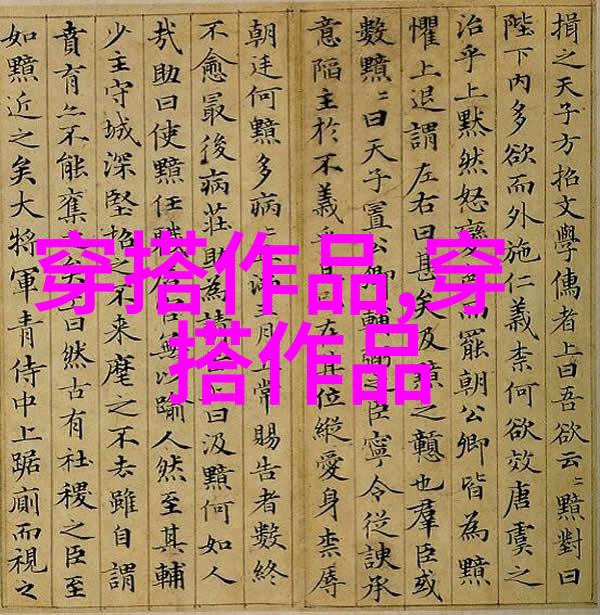 揖之天子方招文學儒者上曰吾欲云〻黯對曰
陛下內多欲而外施仁義柰何欲效唐虞之
治乎上黙然怒變罷朝公卿皆為黯
懼上退謂左右曰甚矣汲黯之戇也羣臣或
數黯〻曰天子置公卿輔弼之臣寧令従諛承
意陷主於不義乎且已在其位縱愛身柰辱
朝廷何黯多病〻滿三月上常賜告者數終
不愈最後病莊助為請曰汲黯何如人
㦲助曰使黯任職居官無以踰人然至其輔
少主守城深堅招之不来麾之不去雖自謂
賁育亦不能奪之矣曰然古有社稷之臣至
如黯近之矣大將軍青侍中上踞廁而視之
穿搭作品,穿
搭作品